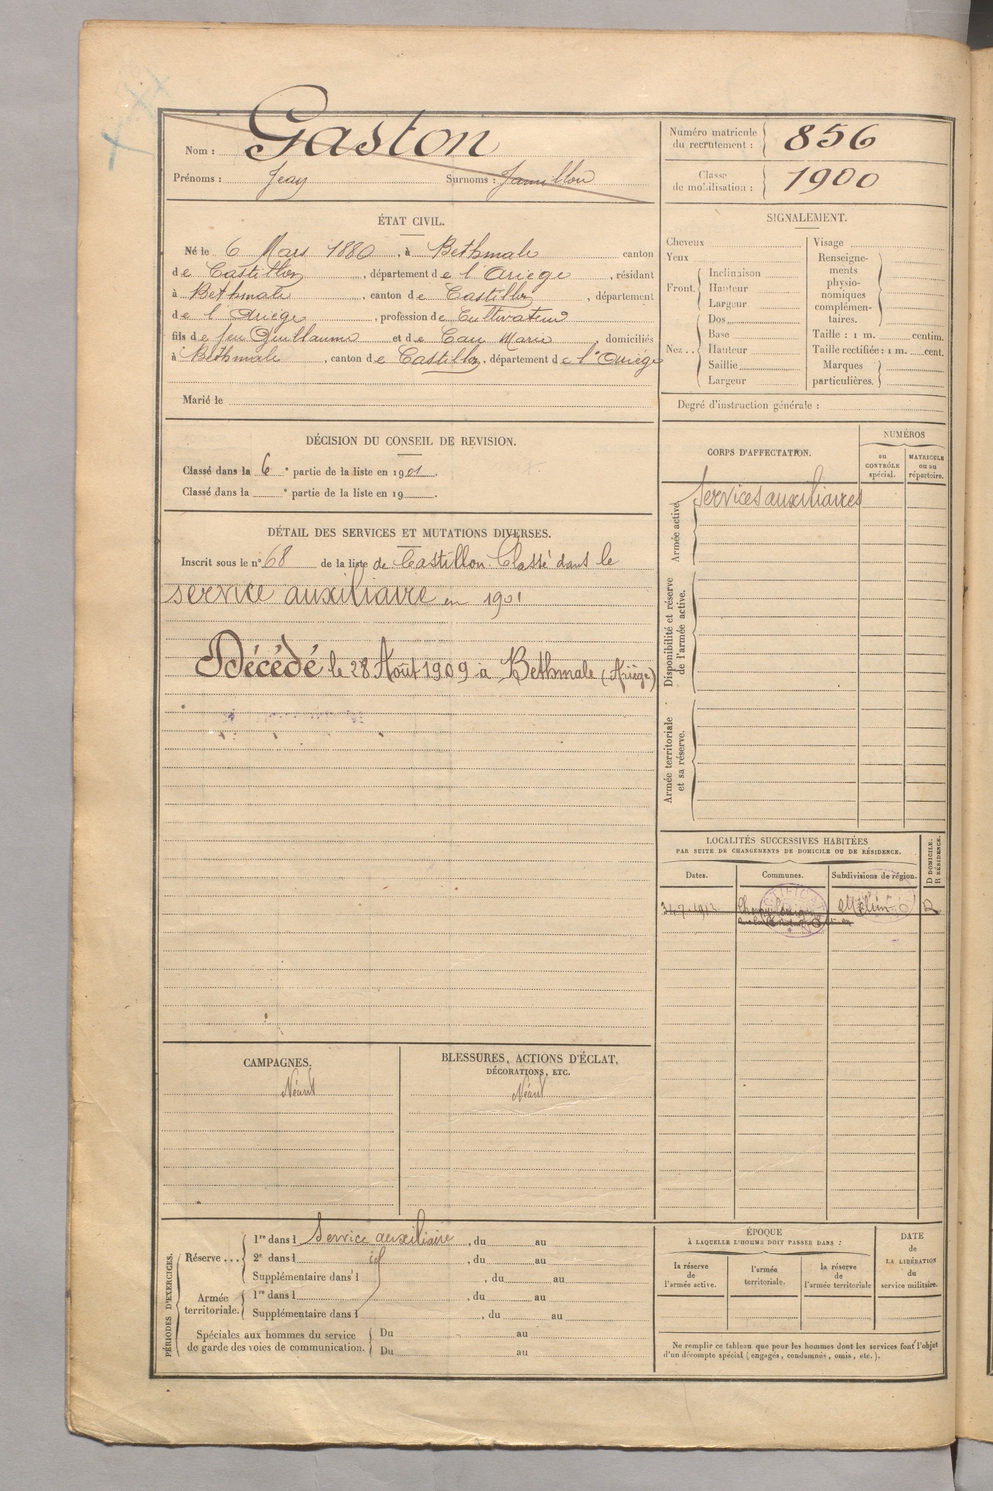 Nom : Gaston
Prénoms : Jean Surnoms :
Numéro matricule du recrutement : 856
Classe de mobilisation : 1900
ÉTAT CIVIL.
Né le 6 Mars 1880, à Bethmale canton
de Castillon, département de l'Ariège, résidant
à Bethmale, canton de Castillon, département
de l'Ariège, profession de Cultivateur
fils de feu Guillaume et de Cau Marie domiciliés
à Bethmale, canton de Castillon, département de l'Ariège
Marié le
SIGNALEMENT.
Cheveux
Yeux
Front. Inclinaison
Hauteur
Largeur
Nez .. Dos
Base
Hauteur
Saillie
Largeur
Visage
Renseigne-
ments
physio-
nomiques
complémen-
taires.
Taille : 1 m. centim.
Taille rectifiée : 1 m. cent.
Marques
particulières.
Degré d'instruction générale :
DÉCISION DU CONSEIL DE REVISION.
Classé dans la 6e partie de la liste en 1901.
Classé dans la e partie de la liste en 19 .
DÉTAIL DES SERVICES ET MUTATIONS DIVERSES.
Inscrit sous le n° 68 de la liste de Castillon. Classé dans le
service auxiliaire en 1901
Décédé le 28 Août 1909 à Bethmale (Ariège)
CORPS D'AFFECTATION.
NUMÉROS
au
CONTRÔLE
spécial.
MATRICULE
ou au
répertoire.
Armée active.
Services auxiliaires
Disponibilité et réserve
de l'armée active.
Armée territoriale
et sa réserve.
LOCALITÉS SUCCESSIVES HABITÉES
PAR SUITE DE CHANGEMENTS DE DOMICILE OU DE RÉSIDENCE.
Dates. Communes. Subdivisions de région. D DOMICILE. R RÉSIDENCE.
Melun R
CAMPAGNES.
Néant
BLESSURES, ACTIONS D'ÉCLAT,
DÉCORATIONS, ETC.
Néant
PÉRIODES D'EXERCICES.
Réserve ... 1re dans l Service auxiliaire, du au
2e dans l id, du au
Supplémentaire dans l , du au
Armée
territoriale. 1re dans l , du au
Supplémentaire dans l , du au
Spéciales aux hommes du service
de garde des voies de communication. Du au
Du au
ÉPOQUE
À LAQUELLE L'HOMME DOIT PASSER DANS :
la réserve
de
l'armée active.
l'armée
territoriale.
la réserve
de
l'armée territoriale
DATE
de
LA LIBÉRATION
du
service militaire.
Ne remplir ce tableau que pour les hommes dont les services font l'objet
d'un décompte spécial (engagés, condamnés, omis, etc.).